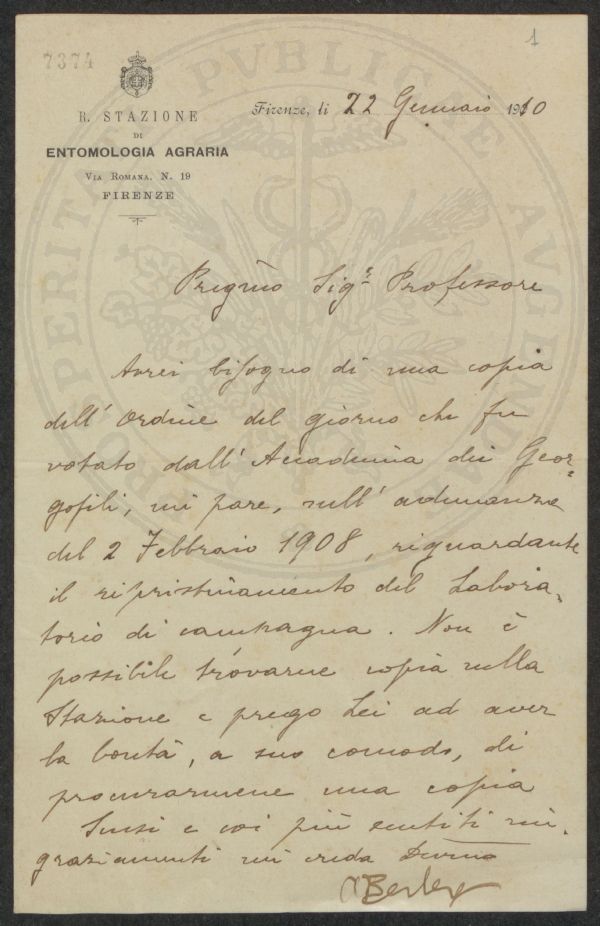 7374
1
R. STAZIONE
DI
ENTOMOLOGIA AGRARIA
VIA ROMANA, N. 19
FIRENZE
Firenze, li 22 Gennaio 1910
Pregmo Sigr Professore
Avrei bisogno di una copia
dell' Ordine del giorno che fu
votato dall' Accademia dei Geor=
gofili, mi pare, nell' adunanza
del 2 Febbraio 1908, riguardante
il ripristinamento del Labora-
torio di campagna. Non è
possibile trovarne copia nella
Stazione e prego Lei ad aver
la bontà, a suo comodo, di
procurarmene una copia
Scusi e coi più sentiti rin-
graziamenti mi creda Devmo
ABerlese